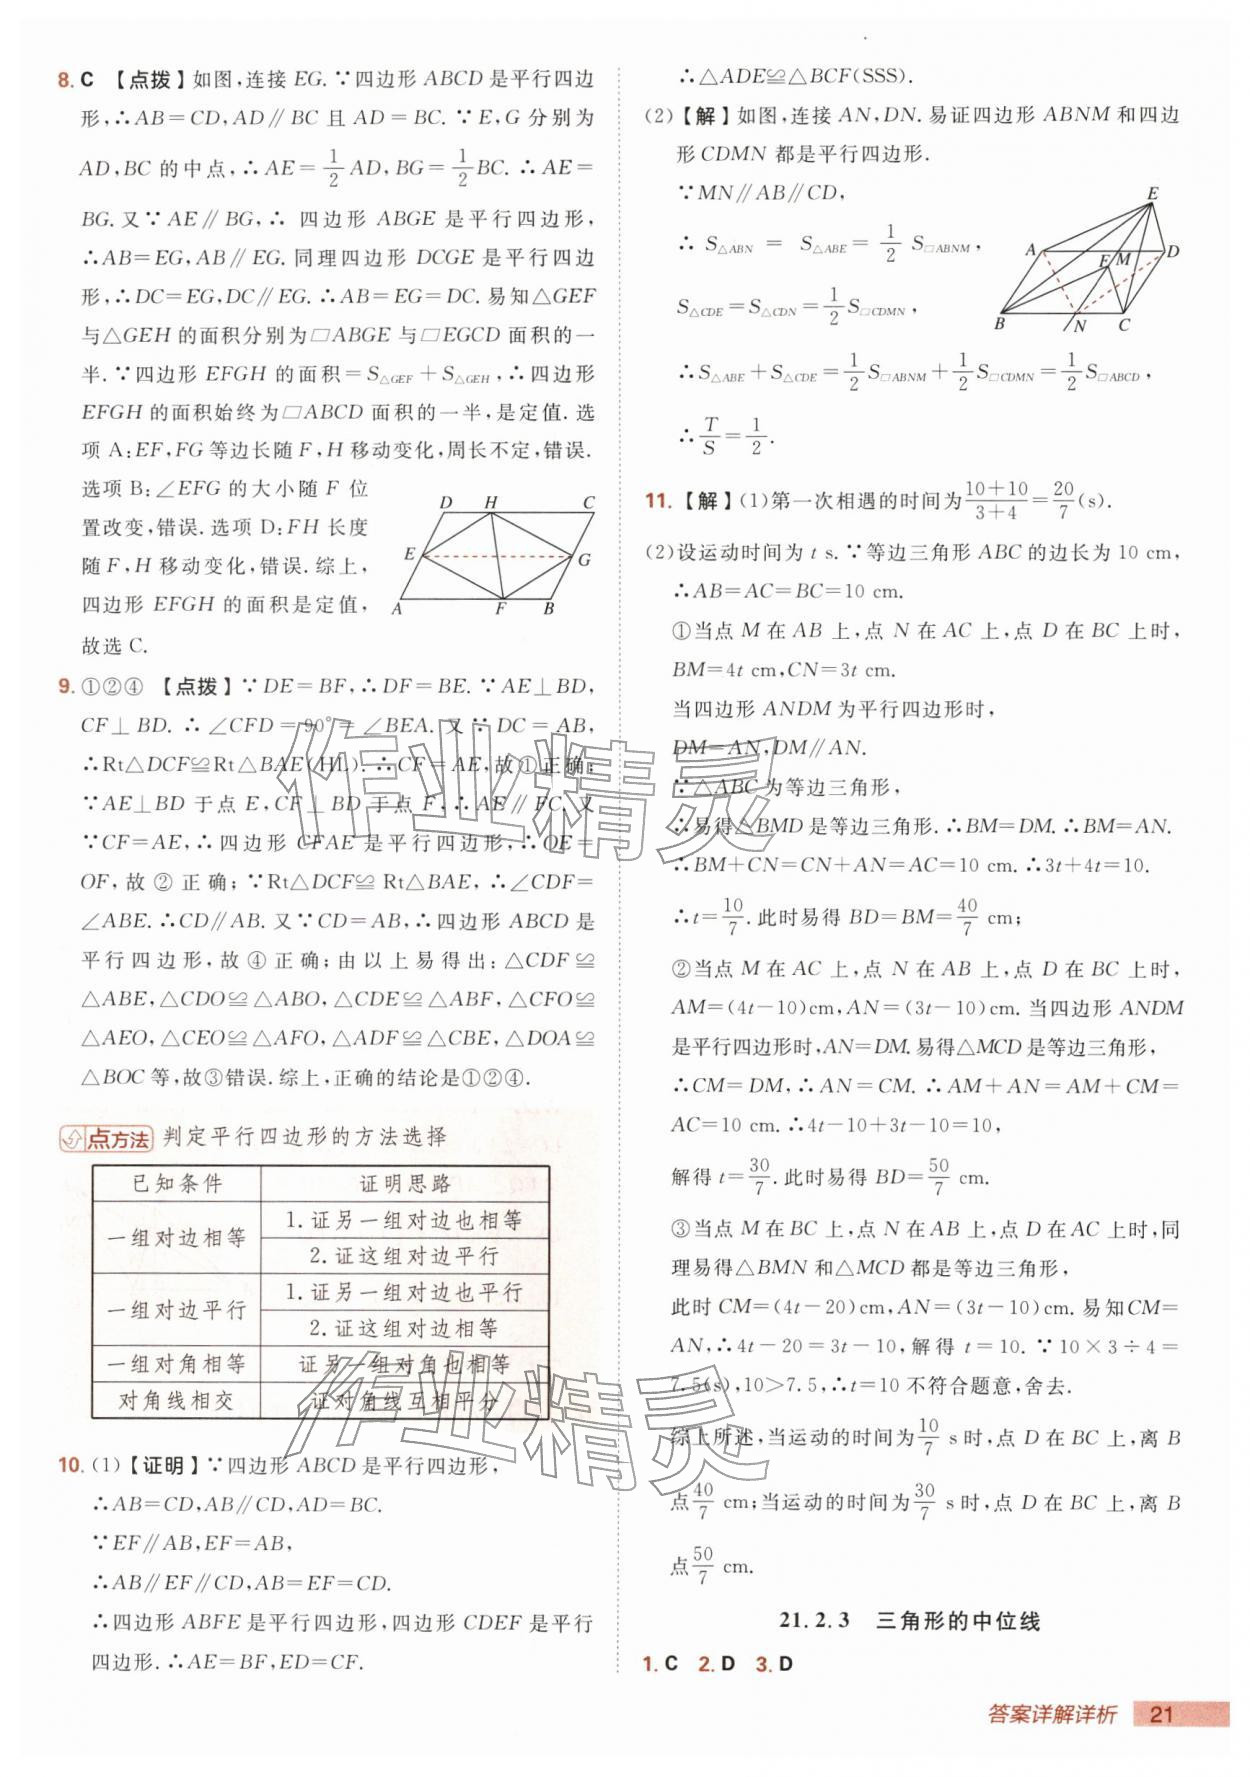 8. C 【点拨】如图,连接 EG. ∵四边形 ABCD 是平行四边
形,∴AB=CD,AD∥BC 且 AD=BC. ∵E,G 分别为
AD,BC 的中点,∴AE=1/2AD,BG=1/2BC. ∴AE=
BG. 又∵AE∥BG,∴四边形 ABGE 是平行四边形,
∴AB=EG,AB∥EG. 同理四边形 DCGE 是平行四边
形,∴DC=EG,DC∥EG. ∴AB=EG=DC. 易知△GEF
与△GEH 的面积分别为□ABGE 与□EGCD 面积的一
半. ∵四边形 EFGH 的面积=S△GEF+S△GEH,∴四边形
EFGH 的面积始终为□ABCD 面积的一半,是定值. 选
项 A:EF,FG 等边长随 F,H 移动变化,周长不定,错误.
选项 B:∠EFG 的大小随 F 位
置改变,错误. 选项 D:FH 长度
随 F,H 移动变化,错误. 综上,
四边形 EFGH 的面积是定值,
故选 C.
D H C
E G
A F B
9. ①②④ 【点拨】∵DE=BF,∴DF=BE. ∵AE⊥BD,
CF⊥BD. ∴∠CFD=90°=∠BEA. 又∵DC=AB,
∴Rt△DCF≌Rt△BAE(HL). ∴CF=AE,故①正确;
∵AE⊥BD 于点 E,CF⊥BD 于点 F,∴AE∥FC. 又
∵CF=AE,∴四边形 CFAE 是平行四边形,∴OE=
OF,故②正确;∵Rt△DCF≌Rt△BAE,∴∠CDF=
∠ABE. ∴CD∥AB. 又∵CD=AB,∴四边形 ABCD 是
平行四边形,故④正确;由以上易得出:△CDF≌
△ABE,△CDO≌△ABO,△CDE≌△ABF,△CFO≌
△AEO,△CEO≌△AFO,△ADF≌△CBE,△DOA≌
△BOC 等,故③错误. 综上,正确的结论是①②④.
点方法 判定平行四边形的方法选择
已知条件 证明思路
一组对边相等 1. 证另一组对边也相等
2. 证这组对边平行
一组对边平行 1. 证另一组对边也平行
2. 证这组对边相等
一组对角相等 证另一组对角也相等
对角线相交 证对角线互相平分
10. (1)【证明】∵四边形 ABCD 是平行四边形,
∴AB=CD,AB∥CD,AD=BC.
∵EF∥AB,EF=AB,
∴AB∥EF∥CD,AB=EF=CD.
∴四边形 ABFE 是平行四边形,四边形 CDEF 是平行
四边形. ∴AE=BF,ED=CF.
∴△ADE≌△BCF(SSS).
(2)【解】如图,连接 AN,DN. 易证四边形 ABNM 和四边
形 CDMN 都是平行四边形.
∵MN∥AB∥CD,
∴S△ABN=S△ABE=1/2S□ABNM,
S△CDE=S△CDN=1/2S□CDMN,
E
A F M D
B N C
∴S△ABE+S△CDE=1/2S□ABNM+1/2S□CDMN=1/2S□ABCD,
∴T/S=1/2.
11. 【解】(1)第一次相遇的时间为(10+10)/(3+4)=20/7(s).
(2)设运动时间为 t s. ∵等边三角形 ABC 的边长为 10 cm,
∴AB=AC=BC=10 cm.
①当点 M 在 AB 上,点 N 在 AC 上,点 D 在 BC 上时,
BM=4t cm,CN=3t cm.
当四边形 ANDM 为平行四边形时,
DM=AN,DM∥AN.
∵△ABC 为等边三角形,
∴易得△BMD 是等边三角形. ∴BM=DM. ∴BM=AN.
∴BM+CN=CN+AN=AC=10 cm. ∴3t+4t=10.
∴t=10/7. 此时易得 BD=BM=40/7 cm;
②当点 M 在 AC 上,点 N 在 AB 上,点 D 在 BC 上时,
AM=(4t-10)cm,AN=(3t-10)cm. 当四边形 ANDM
是平行四边形时,AN=DM. 易得△MCD 是等边三角形,
∴CM=DM,∴AN=CM. ∴AM+AN=AM+CM=
AC=10 cm. ∴4t-10+3t-10=10,
解得 t=30/7. 此时易得 BD=50/7 cm,
③当点 M 在 BC 上,点 N 在 AB 上,点 D 在 AC 上时,同
理易得△BMN 和△MCD 都是等边三角形,
此时 CM=(4t-20)cm,AN=(3t-10)cm. 易知CM=
AN,∴4t-20=3t-10,解得 t=10. ∵10×3÷4=
7.5(s),10>7.5,∴t=10 不符合题意,舍去.
综上所述,当运动的时间为10/7 s时,点 D 在 BC 上,离 B
点40/7 cm;当运动的时间为30/7 s时,点 D 在 BC 上,离 B
点50/7 cm.
21.2.3 三角形的中位线
1. C 2. D 3. D
答案详解详析 21
作业精灵
作业精灵